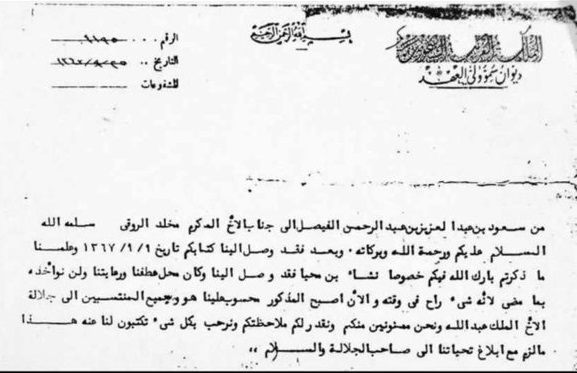 بسم الله الرحمن الرحيم
المملكة العربية السعودية
ديوان سمو ولي العهد
الرقم
التاريخ
المشفوعات
من سعود بن عبدالعزيز بن عبدالرحمن الفيصل الى جناب الاخ المكرم مخلد الروقى سلمه الله
السلام عليكم ورحمة الله وبركاته . وبعد فقد وصل الينا كتابكم تاريخ ١٣٦٧/٩/٩ وعلمنا
ما ذكرتم بارك الله فيكم خصوصا نشاء بن محيا فقد وصل الينا وكان محل عطفنا ورعايتنا ولن نواخذه
بما مضى لانه شىء راح فى وقته والان اصبح المذكور محسوب علينا هو وجميع المنتسبين الى جلالة
الاخ الملك عبدالله ونحن ممنونين منكم ونقدر لكم ملاحظتكم ونرحب بكل شىء تكتبون لنا عنه هذا
مالزم مع ابلاغ تحياتنا الى صاحب الجلالة والسلام ،،